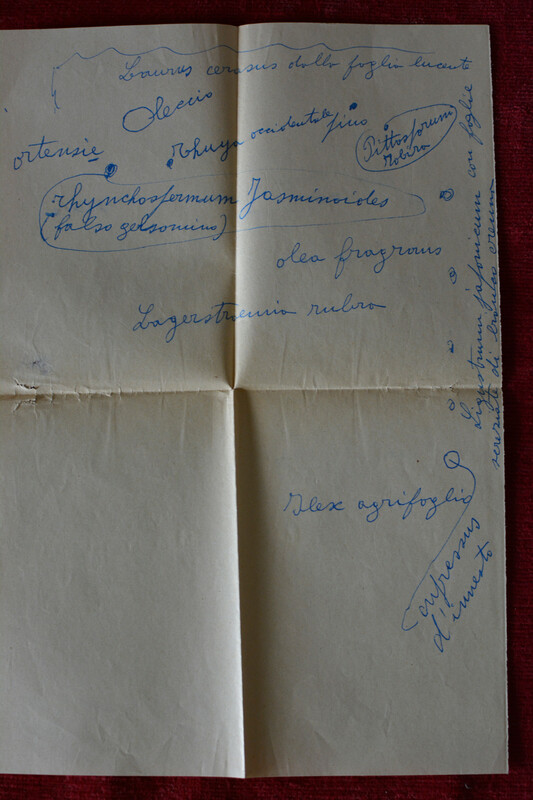 Laurus cerasus dalla foglia lucente
Oleccio
ortensie
thuya occidentale
pino
Pittosforum
Tobira
rhynchospermum Jasminoides
(falso gelsomino)
olea fragrans
Lagerstroemia rubra
Ligustrum japonicum con foglie
screziate di bianco crema
Ilex agrifoglio
Cupressus
d'innesto